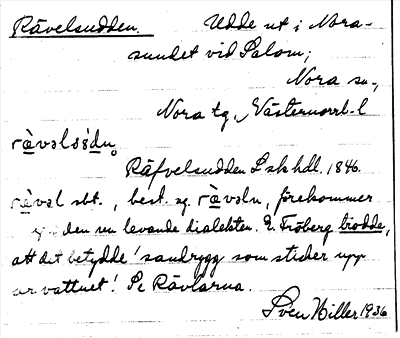 Rävelsudden. Udde ut i Nora-
sundet vid Salom;
Nora sn,
Nora tg, Västernorrl. l
rä̀vəlsɷ̀dn̥
Räfvelsudden Lskhdl. 1846.
rä̀vəl sbt., best. sg. rä̀vəln, förekommer
den nu levande dialekten. E. Fröberg trodde,
att det betydde 'sandrygg som sticker upp
ur vattnet'. Se Rävlarna.
Sven Hiller 1936